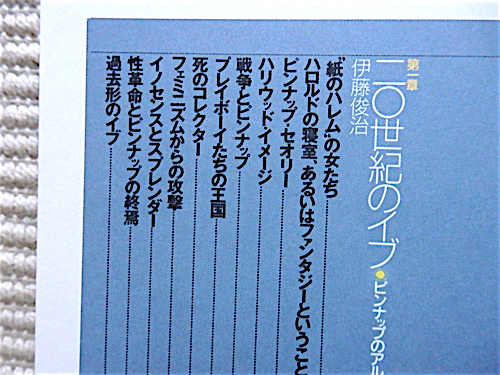 第一章
二〇世紀のイブ●ピンナップのアル
伊藤俊治
"紙のハレム"の女たち
ハロルドの寝室、あるいはファンタジーということ
ピンナップ・セオリー
ハリウッド・イメージ
戦争とピンナップ
プレイボーイたちの王国
死のコレクター
フェミニズムからの攻撃
イノセンスとスプレンダー
性革命とピンナップの終焉
過去形のイブ